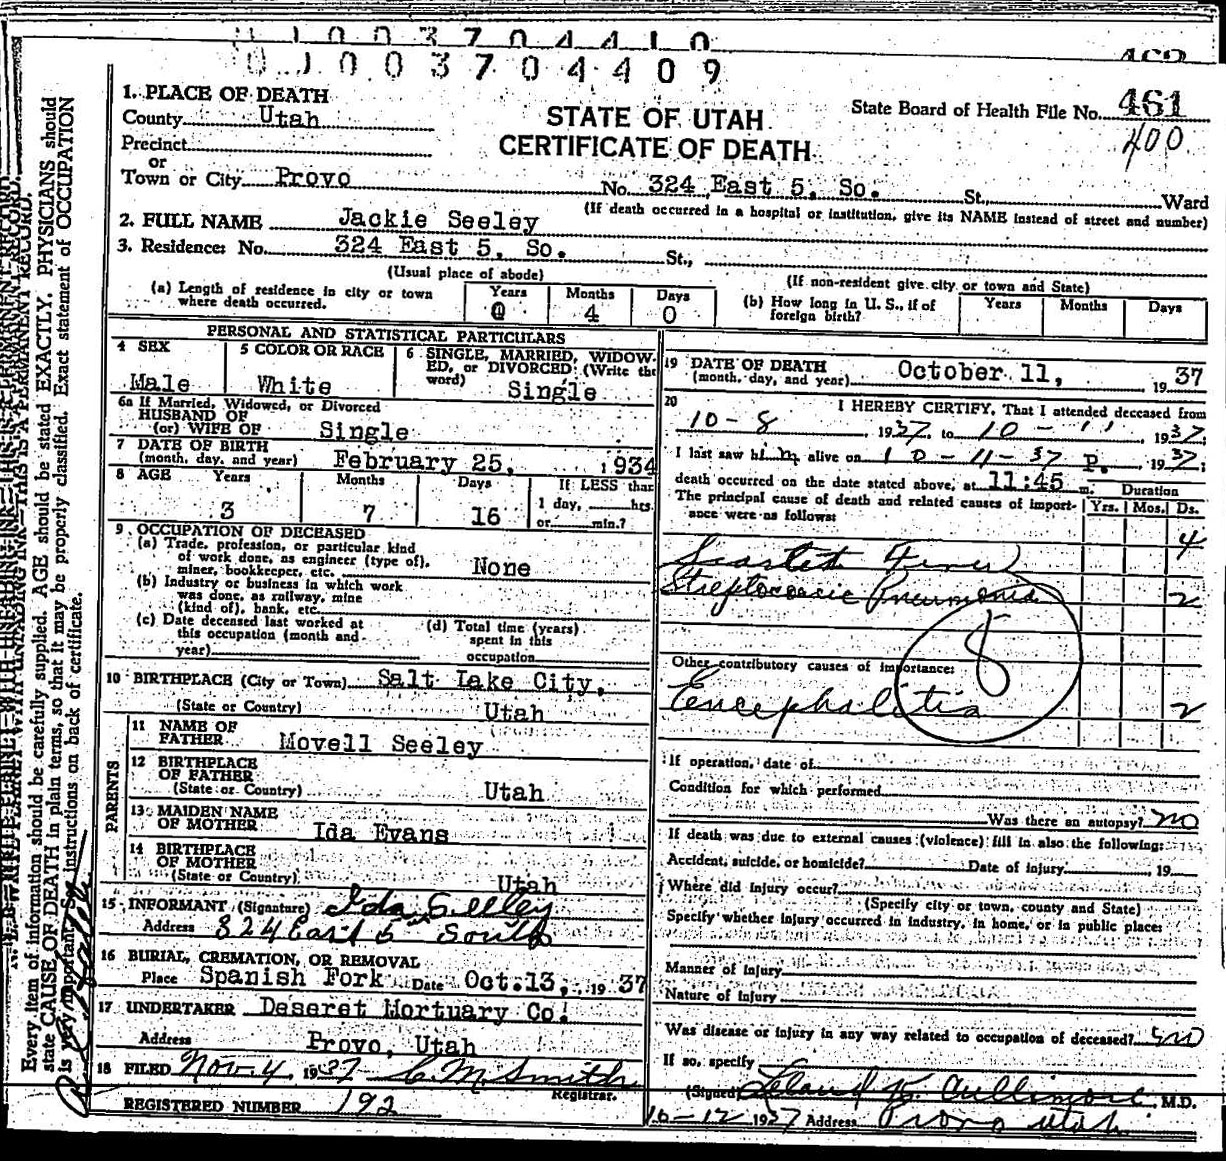 0 1 0 0 3 7 0 4 4 1 0
0 1 0 0 3 7 0 4 4 0 9
462
1. PLACE OF DEATH
County Utah
Precinct
or
Town or City Provo
STATE OF UTAH
CERTIFICATE OF DEATH
State Board of Health File No. 461
400
No. 324 East 5, So. St., Ward
(If death occurred in a hospital or institution, give its NAME instead of street and number)
2. FULL NAME Jackie Seeley
3. Residence: No. 324 East 5, So. St.,
(Usual place of abode)
(If non-resident give city or town and State)
(a) Length of residence in city or town where death occurred. Years 0 Months 4 Days 0
(b) How long in U. S., if of foreign birth? Years Months Days
PERSONAL AND STATISTICAL PARTICULARS
4 SEX
Male
5 COLOR OR RACE
White
6 SINGLE, MARRIED, WIDOWED, or DIVORCED: (Write the word) Single
6a If Married, Widowed, or Divorced
HUSBAND OF
(or) WIFE OF Single
7 DATE OF BIRTH
(month, day, and year) February 25, 1934
8 AGE Years Months Days If LESS than
1 day, hrs.
3 7 16 or min.?
9 OCCUPATION OF DECEASED
(a) Trade, profession, or particular kind
of work done, as engineer (type of),
miner, bookkeeper, etc. None
(b) Industry or business in which work
was done, as railway, mine
(kind of), bank, etc.
(c) Date deceased last worked at
this occupation (month and
year)
(d) Total time (years)
spent in this
occupation
10 BIRTHPLACE (City or Town) Salt Lake City,
(State or Country) Utah
PARENTS
11 NAME OF
FATHER Movell Seeley
12 BIRTHPLACE
OF FATHER
(State or Country) Utah
13 MAIDEN NAME
OF MOTHER Ida Evans
14 BIRTHPLACE
OF MOTHER
(State or Country) Utah
15 INFORMANT (Signature) Ida Seeley
Address 324 East 5th South
16 BURIAL, CREMATION, OR REMOVAL
Place Spanish Fork Date Oct. 13, 1937
17 UNDERTAKER Deseret Mortuary Co.
Address Provo, Utah
18 FILED Nov. 4 1937 C. M. Smith
Registrar.
REGISTERED NUMBER 192
19 DATE OF DEATH
(month, day, and year) October 11, 1937
20 I HEREBY CERTIFY, That I attended deceased from
10-8 1937, to 10-11 1937;
I last saw him alive on 10-11-37 P., 1937;
death occurred on the date stated above, at 11:45 m.
The principal cause of death and related causes of importance were as follows:
Duration
Yrs. Mos. Ds.
Scarlet Fever 4
Streptococcic Pneumonia 2
8
Other contributory causes of importance:
Encephalitis 2
If operation, date of
Condition for which performed
Was there an autopsy? no
If death was due to external causes (violence) fill in also the following:
Accident, suicide, or homicide? Date of injury 19
Where did injury occur?
(Specify city or town, county and State)
Specify whether injury occurred in industry, in home, or in public place:
Manner of Injury
Nature of Injury
Was disease or injury in any way related to occupation of deceased? no
If so, specify
(Signed) Leland K. Cullimore, M.D.
10-12 1937 Address Provo Utah
THIS IS A PERMANENT RECORD.
Every item of information should be carefully supplied. AGE should be stated EXACTLY. PHYSICIANS should
state CAUSE OF DEATH in plain terms, so that it may be properly classified. Exact statement of OCCUPATION
is very important. See instructions on back of certificate.